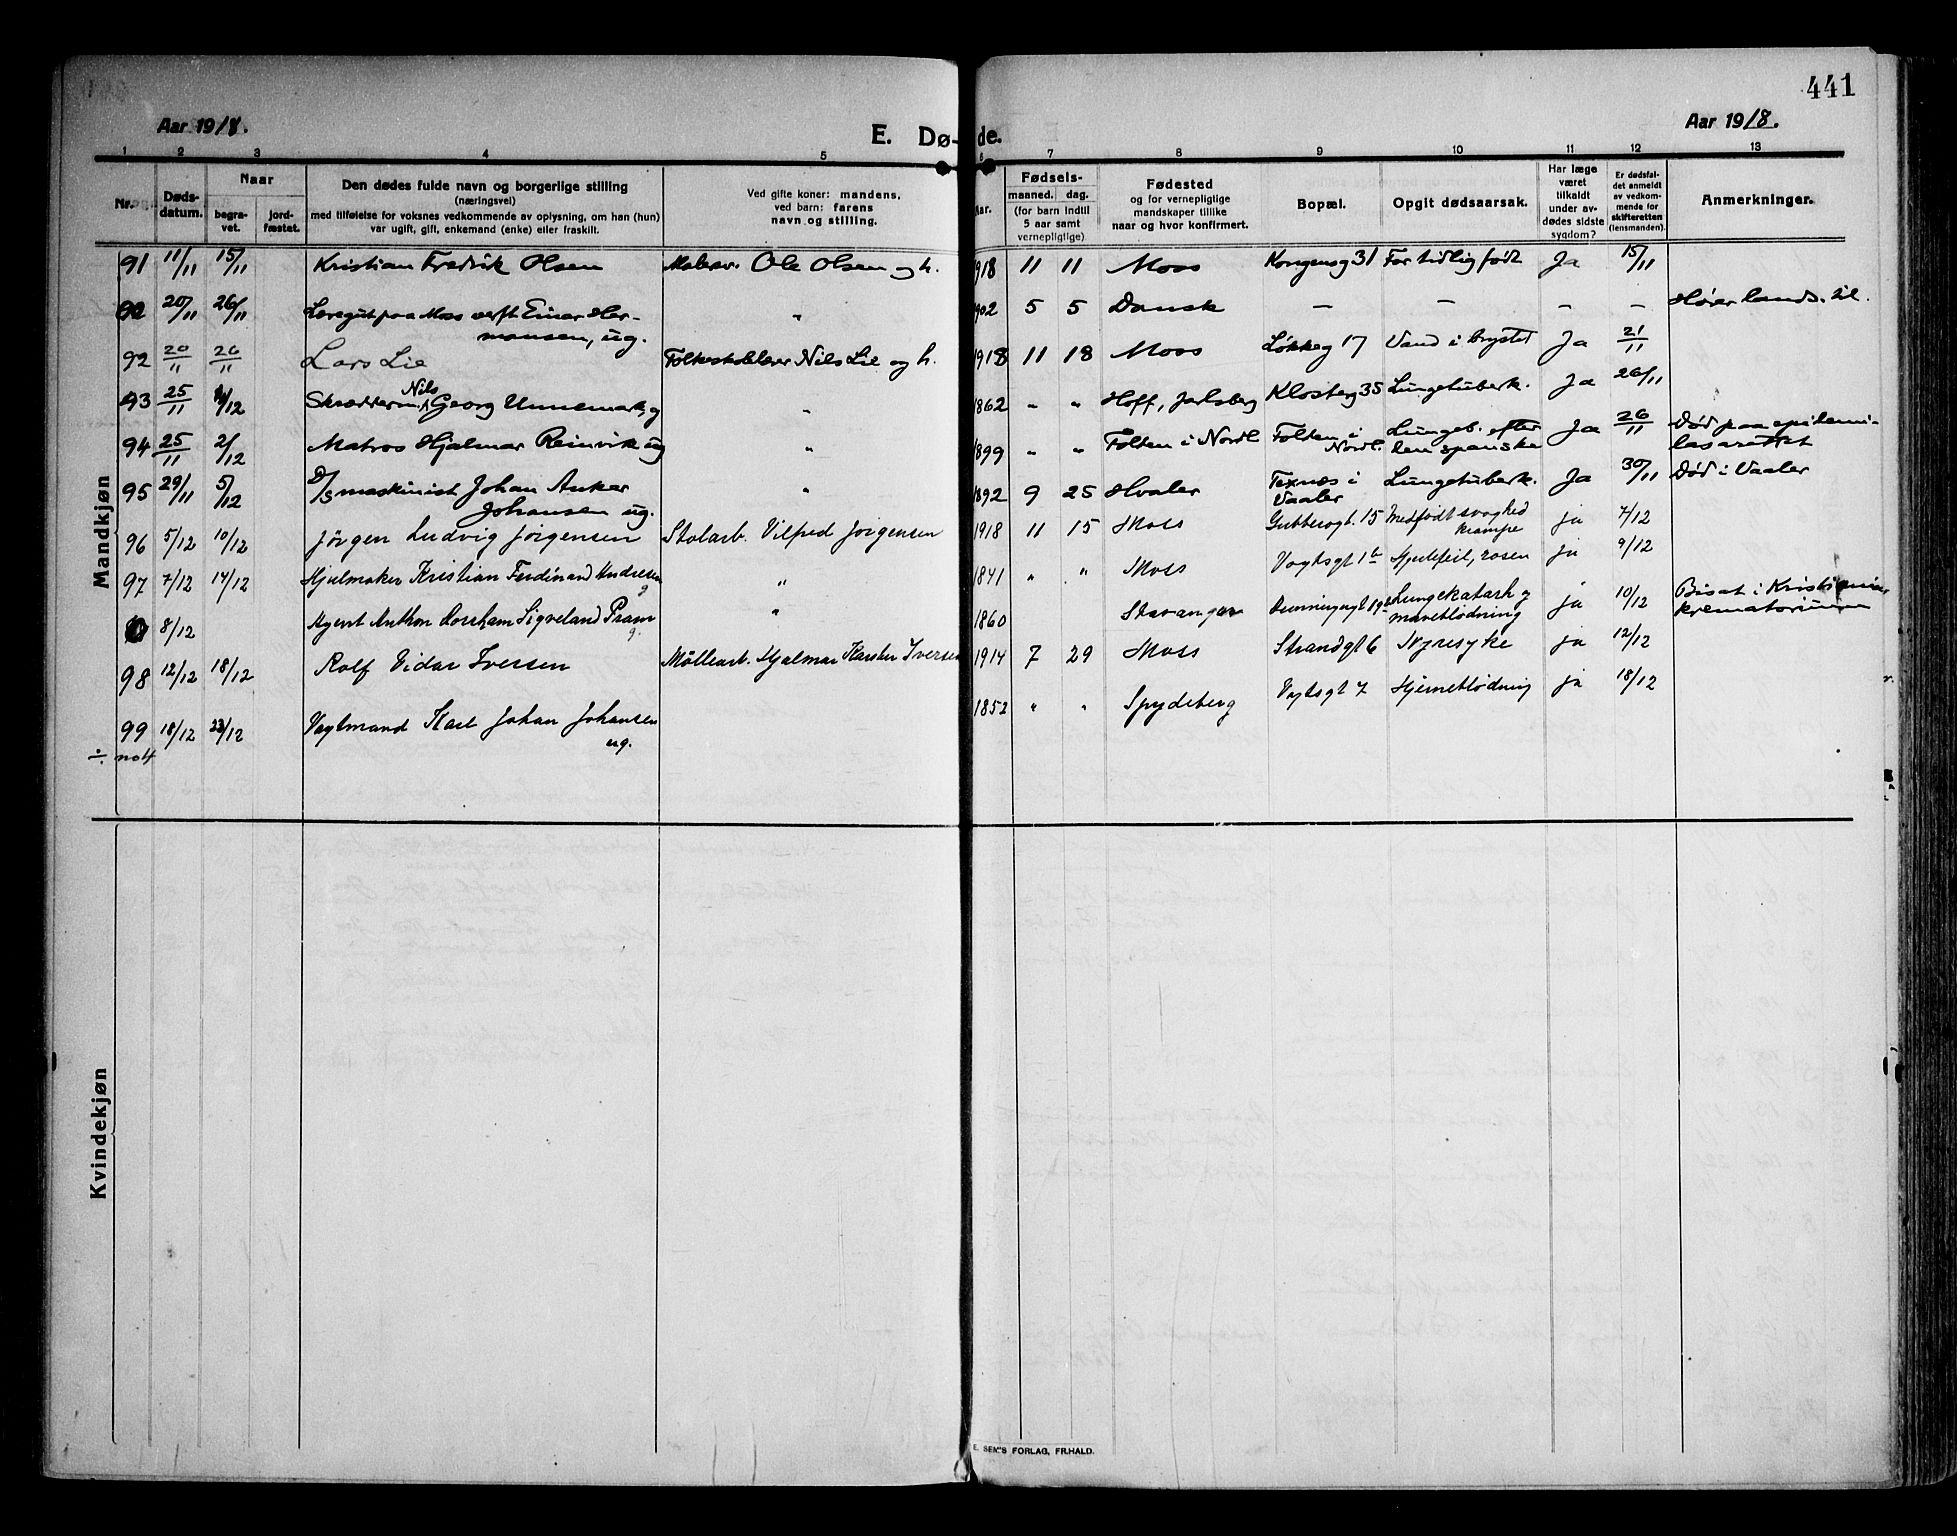 441
Aar 1918.
E. Dø-
de.
Aar 1918.
1 2 3 4 5 6 7 8 9 10 11 12 13
Nr. Døds-datum. Naar begra-vet. jord-fæstet. Den dødes fulde navn og borgerlige stilling (næringsvei) med tilføielse for voksnes vedkommende av oplysning, om han (hun) var ugift, gift, enkemand (enke) eller fraskilt. Ved gifte koner: mandens, ved barn: farens navn og stilling. Aar. Fødsels- maaned. dag. (for barn indtil 5 aar samt vernepligtige) Fødested og for vernepligtige mandskaper tillike naar og hvor konfirmert. Bopæl. Opgit dødsaarsak. Har læge været tilkaldt under av-dødes sidste sygdom? Er dødsfal-det anmeldt av vedkom-mende for skifteretten (lensmanden). Anmerkninger.
Mandkjøn
91 11/11 15/11 Kristian Fredrik Olsen Malersv. Ole Olsen og h. 1918 11 11 Moss Kongensg 31 For tidlig født Ja 15/11
20/11 26/11 Læregut paa Moss verft Einar Her-
mansen, ug. " 1902 5 5 Dansk – – – – Hører lands. til.
92 20/11 26/11 Lars Lie Folkeskolelærer Nils Lie og h. 1918 11 18 Moss Løkkeg 17 Vand i brystet Ja 21/11
93 25/11 /12 Skrædderm. Nils Georg Unnemark, g " 1862 " " Hoff, Jarlsberg Klosterg 35 Lungetuberk. Ja 26/11
94 25/11 2/12 Matros Hjalmar Reinvik ug " 1899 " " Folten i Nordl. Folten i Nordl. Lungeb. efter den spanske Ja 26/11 Død paa epidemi-
lasarettet
95 29/11 5/12 D/S maskinist Johan Anker
Johansen ug. " 1892 9 25 Hvaler Texnæs i Vaaler Lungetuberk. Ja 30/11 Død i Vaaler
96 5/12 10/12 Jörgen Ludvig Jörgensen Stolarb. Vilfred Jorgensen 1918 11 15 Moss Gubberogt. 15 Medfødt svaghed krampe ja 7/12
97 7/12 14/12 Hjulmaker Kristian Ferdinand Andresen g " 1841 " " Moss Vogtsgt 1b Hjertefeil, rosen ja 9/12
8/12 Agent Anthon Sigveland Pram g. " 1860 Stavanger Lungekatarh og maveblødning ja 10/12 Bisat i Kristiania
krematorium
98 12/12 18/12 Rolf Vidar Iversen Møllearb. Hjalmar Karsten Iversen 1914 7 29 Moss Strandgt 6 Nyresyke ja 12/12
99 18/12 23/12 Vagtmand Karl Johan Johansen
ug. 1852 " " Spydeberg Vogtsgt 7 Hjernebлødning ja 18/12
÷ no 4
Kvindekjøn
E. SEM'S FORLAG, FR.HALD.